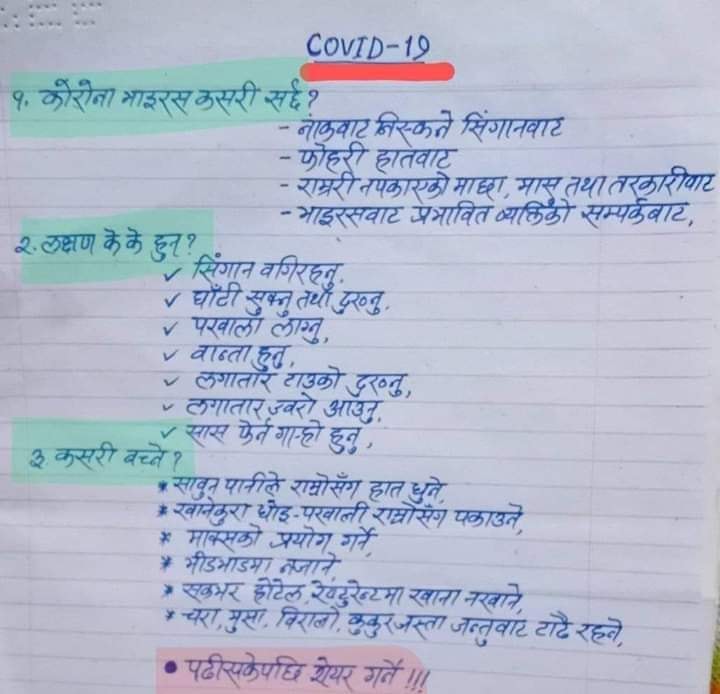 COVID-19
१. कोरोना भाइरस कसरी सर्छ?
- नाकवाट निस्कने सिंगानवाट
- फोहरी हातवाट
- राम्ररी नपकाएको माछा, मासु तथा तरकारीवाट
- भाइरसवाट प्रभावित व्यक्तिको सम्पर्कवाट,
२. लक्षण के के हुन्?
✓ सिंगान वगिरहनु,
✓ घाँटी सुक्नु तथा दुख्नु,
✓ पखाला लाग्नु,
✓ वान्ता हुनु,
✓ लगातार टाउको दुख्नु,
✓ लगातार ज्वरो आउनु,
✓ सास फेर्न गाह्रो हुनु,
३. कसरी बच्ने?
* सावुन पानीले राम्रोसँग हात धुने,
* खानेकुरा धोइ-पखाली राम्रोसँग पकाउने,
* माक्सको प्रयोग गर्ने,
* भीडभाडमा नजाने,
* सकभर होटेल, रेष्टुरेन्टमा खाना नखाने,
* चरा, मुसा, विरालो, कुकुर जस्ता जन्तुवाट टाढै रहने,
• पढीसकेपछि शेयर गर्ने !!!